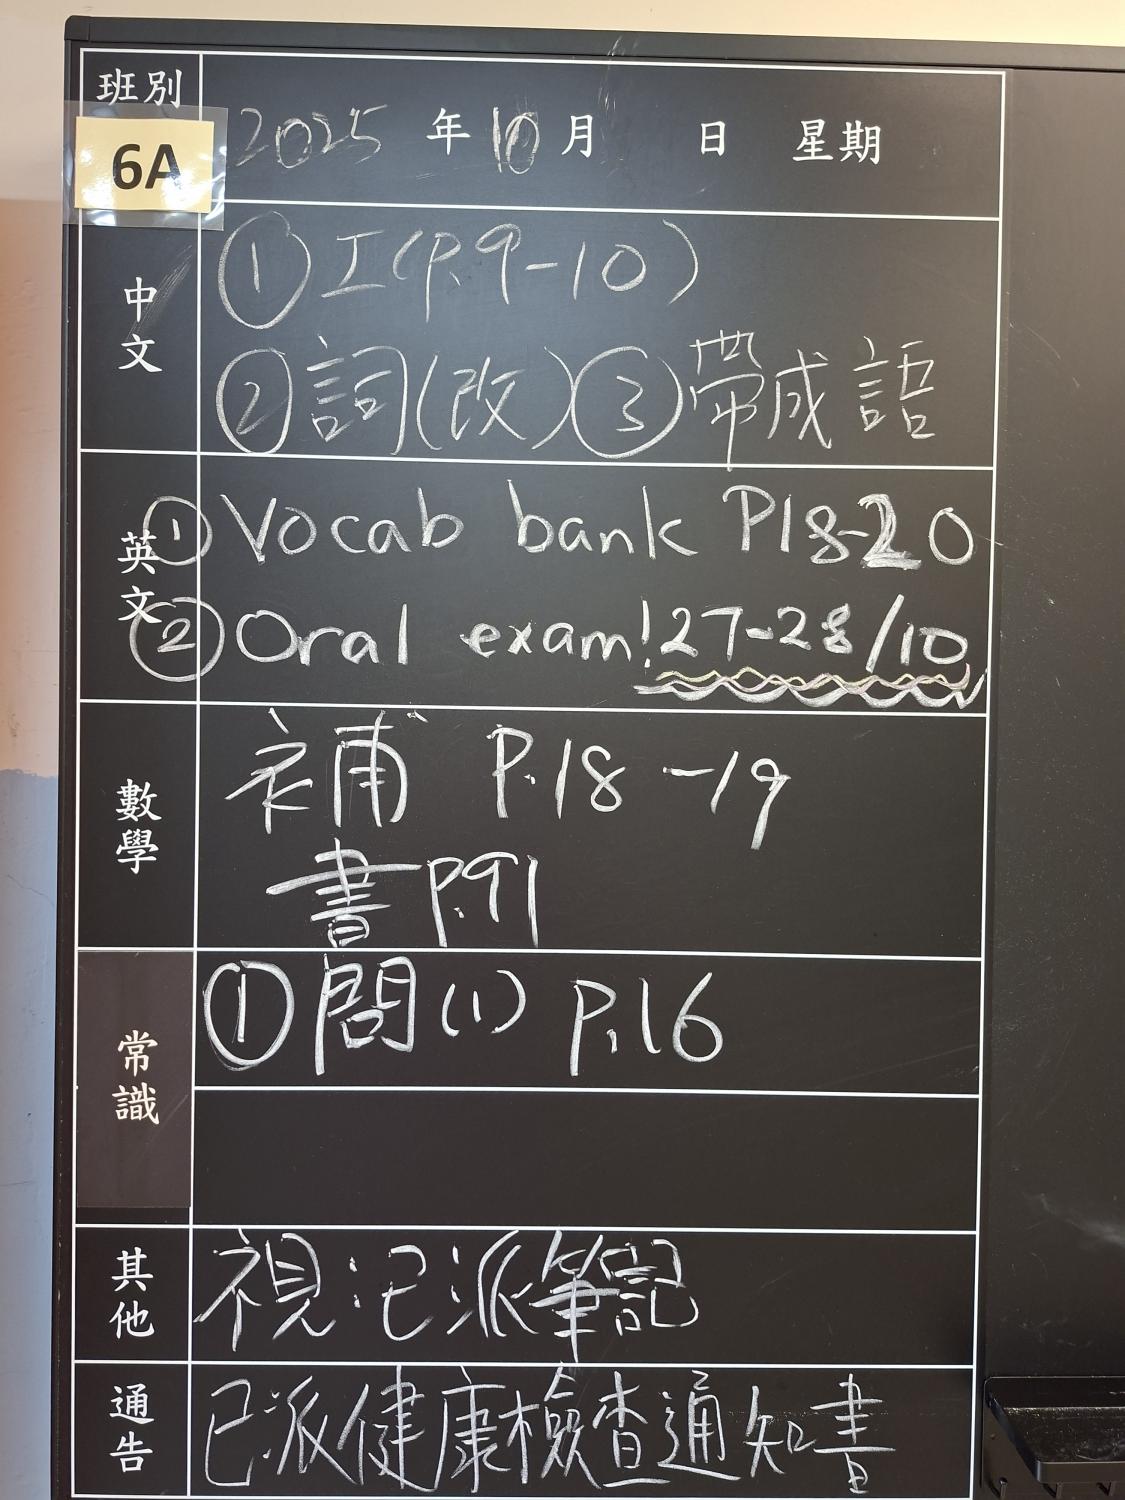 班別
6A
2025 年 10 月 日 星期
中文
① 工(P.9-10)
② 詞(改) ③ 帶成語
英文
① Vocab bank P18-20
② Oral exam! 27-28/10
數學
補 P.18-19
書 P.91
常識
① 問(1) P.16
其他
視:已派筆記
通告
已派健康檢查通知書